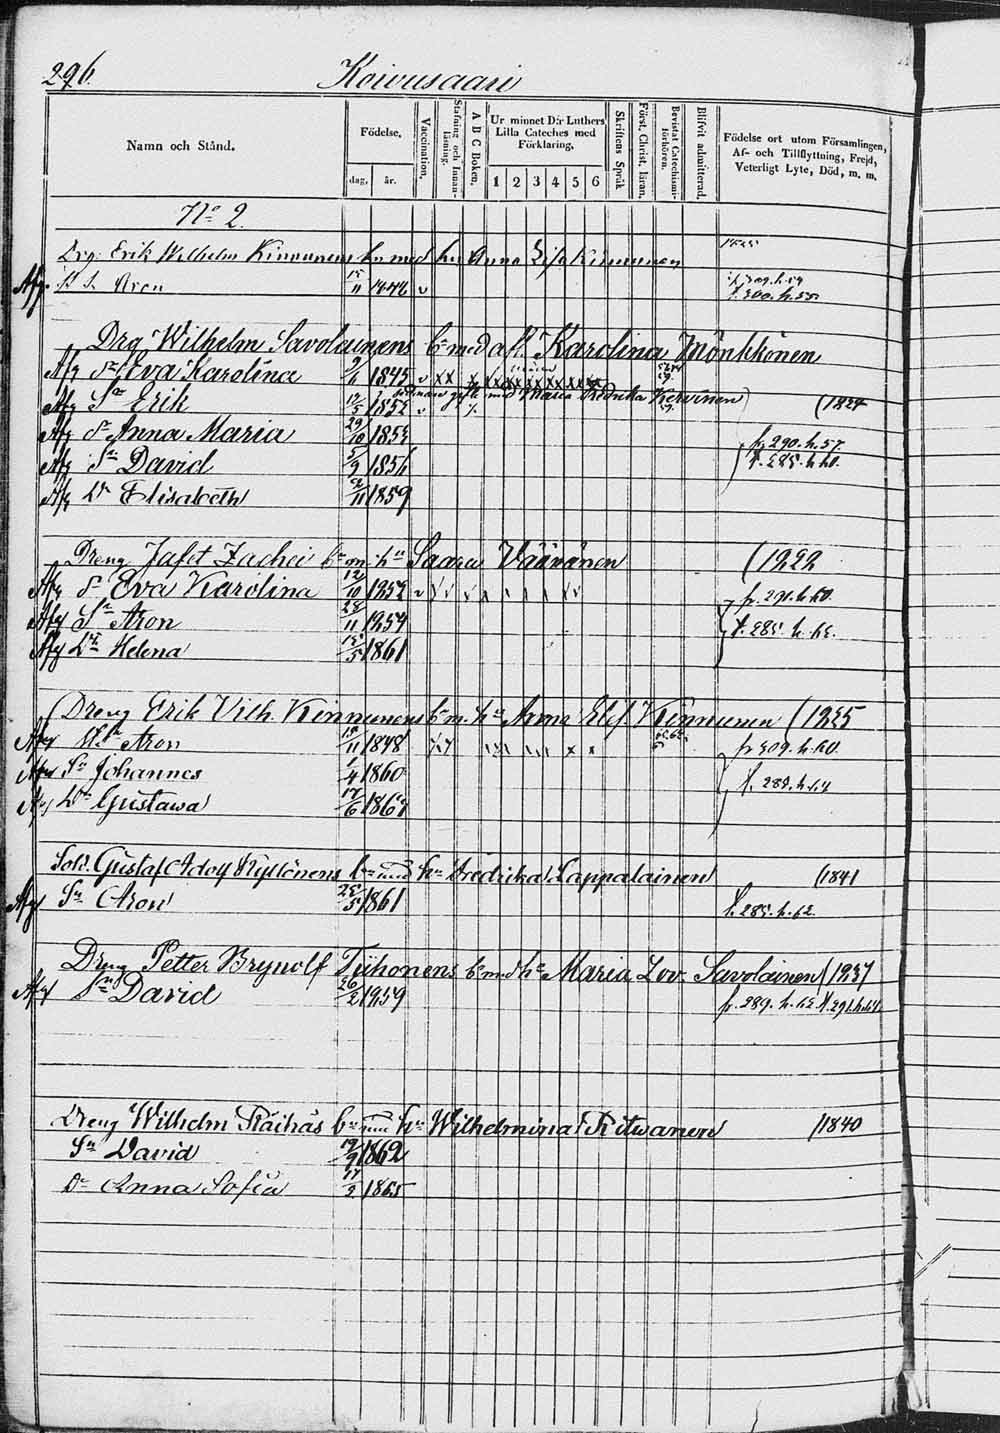 296.
Koivusaari
Namn och Stånd.
Födelse,
dag, år.
Vaccination.
Stafning och Innanläsning.
A B C Boken.
Ur minnet D:r Luthers Lilla Cateches med Förklaring,
1 2 3 4 5 6
Skriftens Språk
Först. Christ. läran.
Bevistat Catechismiförhören.
Blifvit admitterad.
Födelse ort utom Församlingen, Af- och Tillflyttning, Frejd, Veterligt Lyte, Död, m. m.
No 2.
Drg. Erik Wilhelm Kinnunens bn med hu Anna Lisa Kinnunen 1825
Afg. Aron 15/11 1848 v
t. 300. h. 55
Drg Wilhelm Savolainens bn med afl. Karolina Mönkkönen
Afg Dr Eva Karolina 9/6 1845 v x x x x x x x x x x x x
gift med Maria Fredrika Kervinen
Afg Sn Erik 12/5 1852 v (1824
Afg Dr Anna Maria 29/10 1853 fr. 290. h. 57
Afg Sn David 5/9 1856 t. 285. h. 60.
Afg Dr Elisabeth 2/11 1859
Dreng Jafet Zachei bn m. hu Saara Väävänen (1822
Afg Dr Eva Karolina 12/10 1852 v fr. 291. h. 60.
Afg Sn Aron 28/11 1854 t. 285. h. 62.
Afg Dr Helena 15/5 1861
Dreng Erik Vilh. Kinnunens bn m. hu Anna Elis. Kinnunen (1825
Afg Aron 15/11 1848 fr 309. h. 60.
Afg Sn Johannes 1/4 1860 t. 289. h. 64
Afg Dr Gustawa 17/6 186
Sold. Gustaf Adolf Kyllönens bn med hu Fredrika Lappalainen (1841
Afg Sn Aron 25/5 1861 t. 285. h. 62.
Dreng Petter Brynolf Tiihonens bn med hu Maria Lov. Savolainen (1837
Afg Sn David 26/2 1859 fr. 289. h. 62. t. 291. h. 64.
Dreng Wilhelm Räihäs bn med hu Wilhelmina Ritwanen (1840
Sn David 19/9 1862
Dr Anna Sofia 17/9 1865